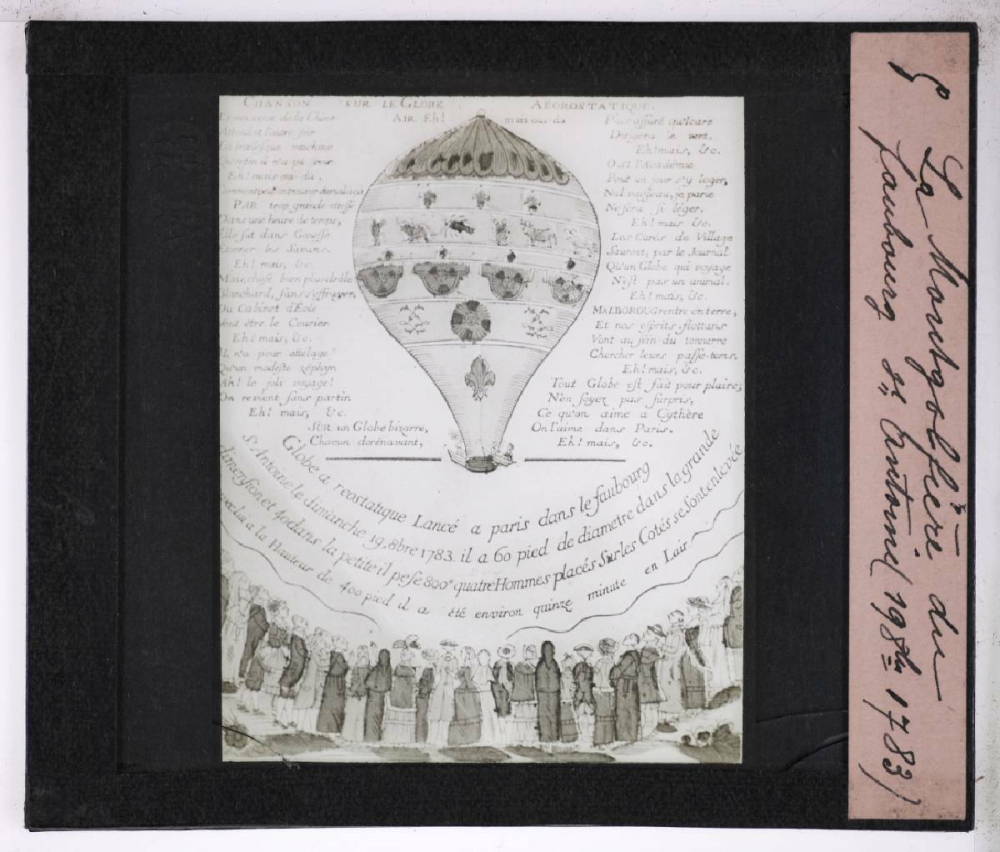 CHANSON SUR LE GLOBE AEOROSTATIQUE.
AIR Eh! mais oui-da
de la Chine
Eh! mais oui-da,
PAR trop grande
Dans une heure de temps,
Elle fut dans Gonesse
Etonner les Savans.
Eh! mais, &c.
bien plus drôle
Blanchard, sans s'effrayer,
Du Cabinet d'Eole
être le Courier
Eh! mais, &c.
Il n'a pour attelage
Qu'un modeste zéphyr
Ah! le joli voyage!
On revient sans partir
Eh! mais, &c.
SUR un Globe bizarre,
Chacun dorénavant,
Plus assuré qu'Icare
Dirigera le vent.
Eh! mais, &c.
O si l'Académie
Peut un jour s'y loger,
Nul vaisseau, je parie
Ne sera si léger.
Eh! mais &c.
Les Curés de Village
Sauront, par le Journal
Qu'un Globe qui voyage
N'est pas un animal.
Eh! mais, &c.
MALBOROUG rentre en terre,
Et nos esprits flottans
Vont au sein du tonnerre
Chercher leurs passe-tems.
Eh! mais, &c.
Tout Globe est fait pour plaire,
N'en soyez pas surpris,
Ce qu'on aime à Cythère
On l'aime dans Paris.
Eh! mais, &c.
Globe a reostatique Lancé a paris dans le faubourg
St Antoine le dimanche 19. 8bre 1783. il a 60 pied de diametre dans la grande
dimension et 40 dans la petite il pese 800# quatre Hommes placés Sur les Cotés se sont enlevée
a la Hauteur de 400 pied il a été environ quinze minute en Lair
La Montgolfière du
faubourg St Antoine (19 8bre 1783)